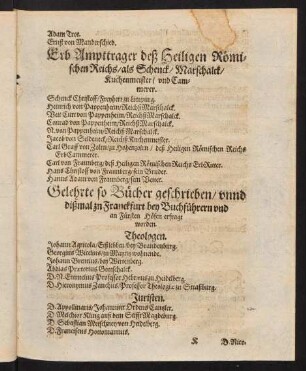 Adam Trot.
Ernst von Manderschied.
Erb Ampttrager deß Heiligen Römi-
schen Reichs/als Schenck/Marschalck/
Kuchenmeister/vnd Cam-
merer.
Schenck Christoff/Freyherr zu Limpurg.
Heinrich von Pappenheim/Reichß Marschalck.
Veit Curt von Pappenheim/Reichß Marschalck.
Conrad von Pappenheim/Reichß Marschalck.
N. von Pappenheim/Reichß Marschalck.
Jacob von Seldeneck/Reichß Kuchenmeister.
Carl Graff von Zolern zu Hohenzolen/deß Heiligen Römischen Reichs
Erb Cammerer.
Carl von Framberg deß Heiligen Römischen Reichs Erb Ritter.
Hans Christoff von Framberg sein Bruder.
Hanns Adam von Framberg sein Vetter.
Gelehrte so Bücher geschrieben/vnnd
dißmal zu Franckfurt bey Buchführern vnd
an Fürsten Höfen erfragt
worden.
Theologen.
Johann Agricola/Eißleben bey Brandenburg.
Georgius Wicelius/zu Mayntz wohnende.
Johann Bonnius/bey
Abdias Pretorius Gottschalck.
D. N. Professor Hebreus zu Heidelberg.
D. Hieronymus Zanchus/Professor Theologiæ zu Straßburg.
Juristen.
D. Appollinaris/Johanniter Ordens Cantzler.
D. Melchior Ring auß dem Stifft Magdeburg.
D. Sebastian Meichsner von Heydelberg.
D. Franciscus Hottomannus.
K D. Nico-